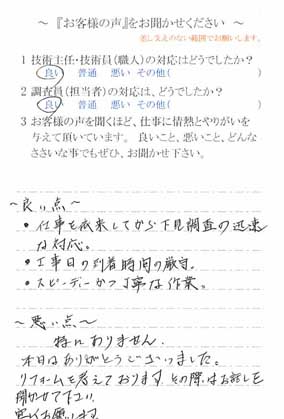 ～『お客様の声』をお聞かせください ～
差し支えのない範囲でお願いします。
1 技術主任・技術員（職人）の対応はどうでしたか？
良い 普通 悪い その他（ ）
2 調査員（担当者）の対応は、どうでしたか？
良い 普通 悪い その他（ ）
3 お客様の声を聞くほど、仕事に情熱とやりがいを
与えて頂いています。 良いこと、悪いこと、どんな
ささいな事でもぜひ、お聞かせ下さい。
～良い点～
・仕事を依来してから下見調査の迅速
な対応。
・工事日の到着時間の厳守。
・スピーディーかつ丁寧な作業。
～悪い点～
特にありません。
本日はありがとうございました。
リフォームを考えております。その際はお話しを
聞かせて下さい。
宜しくお願います。